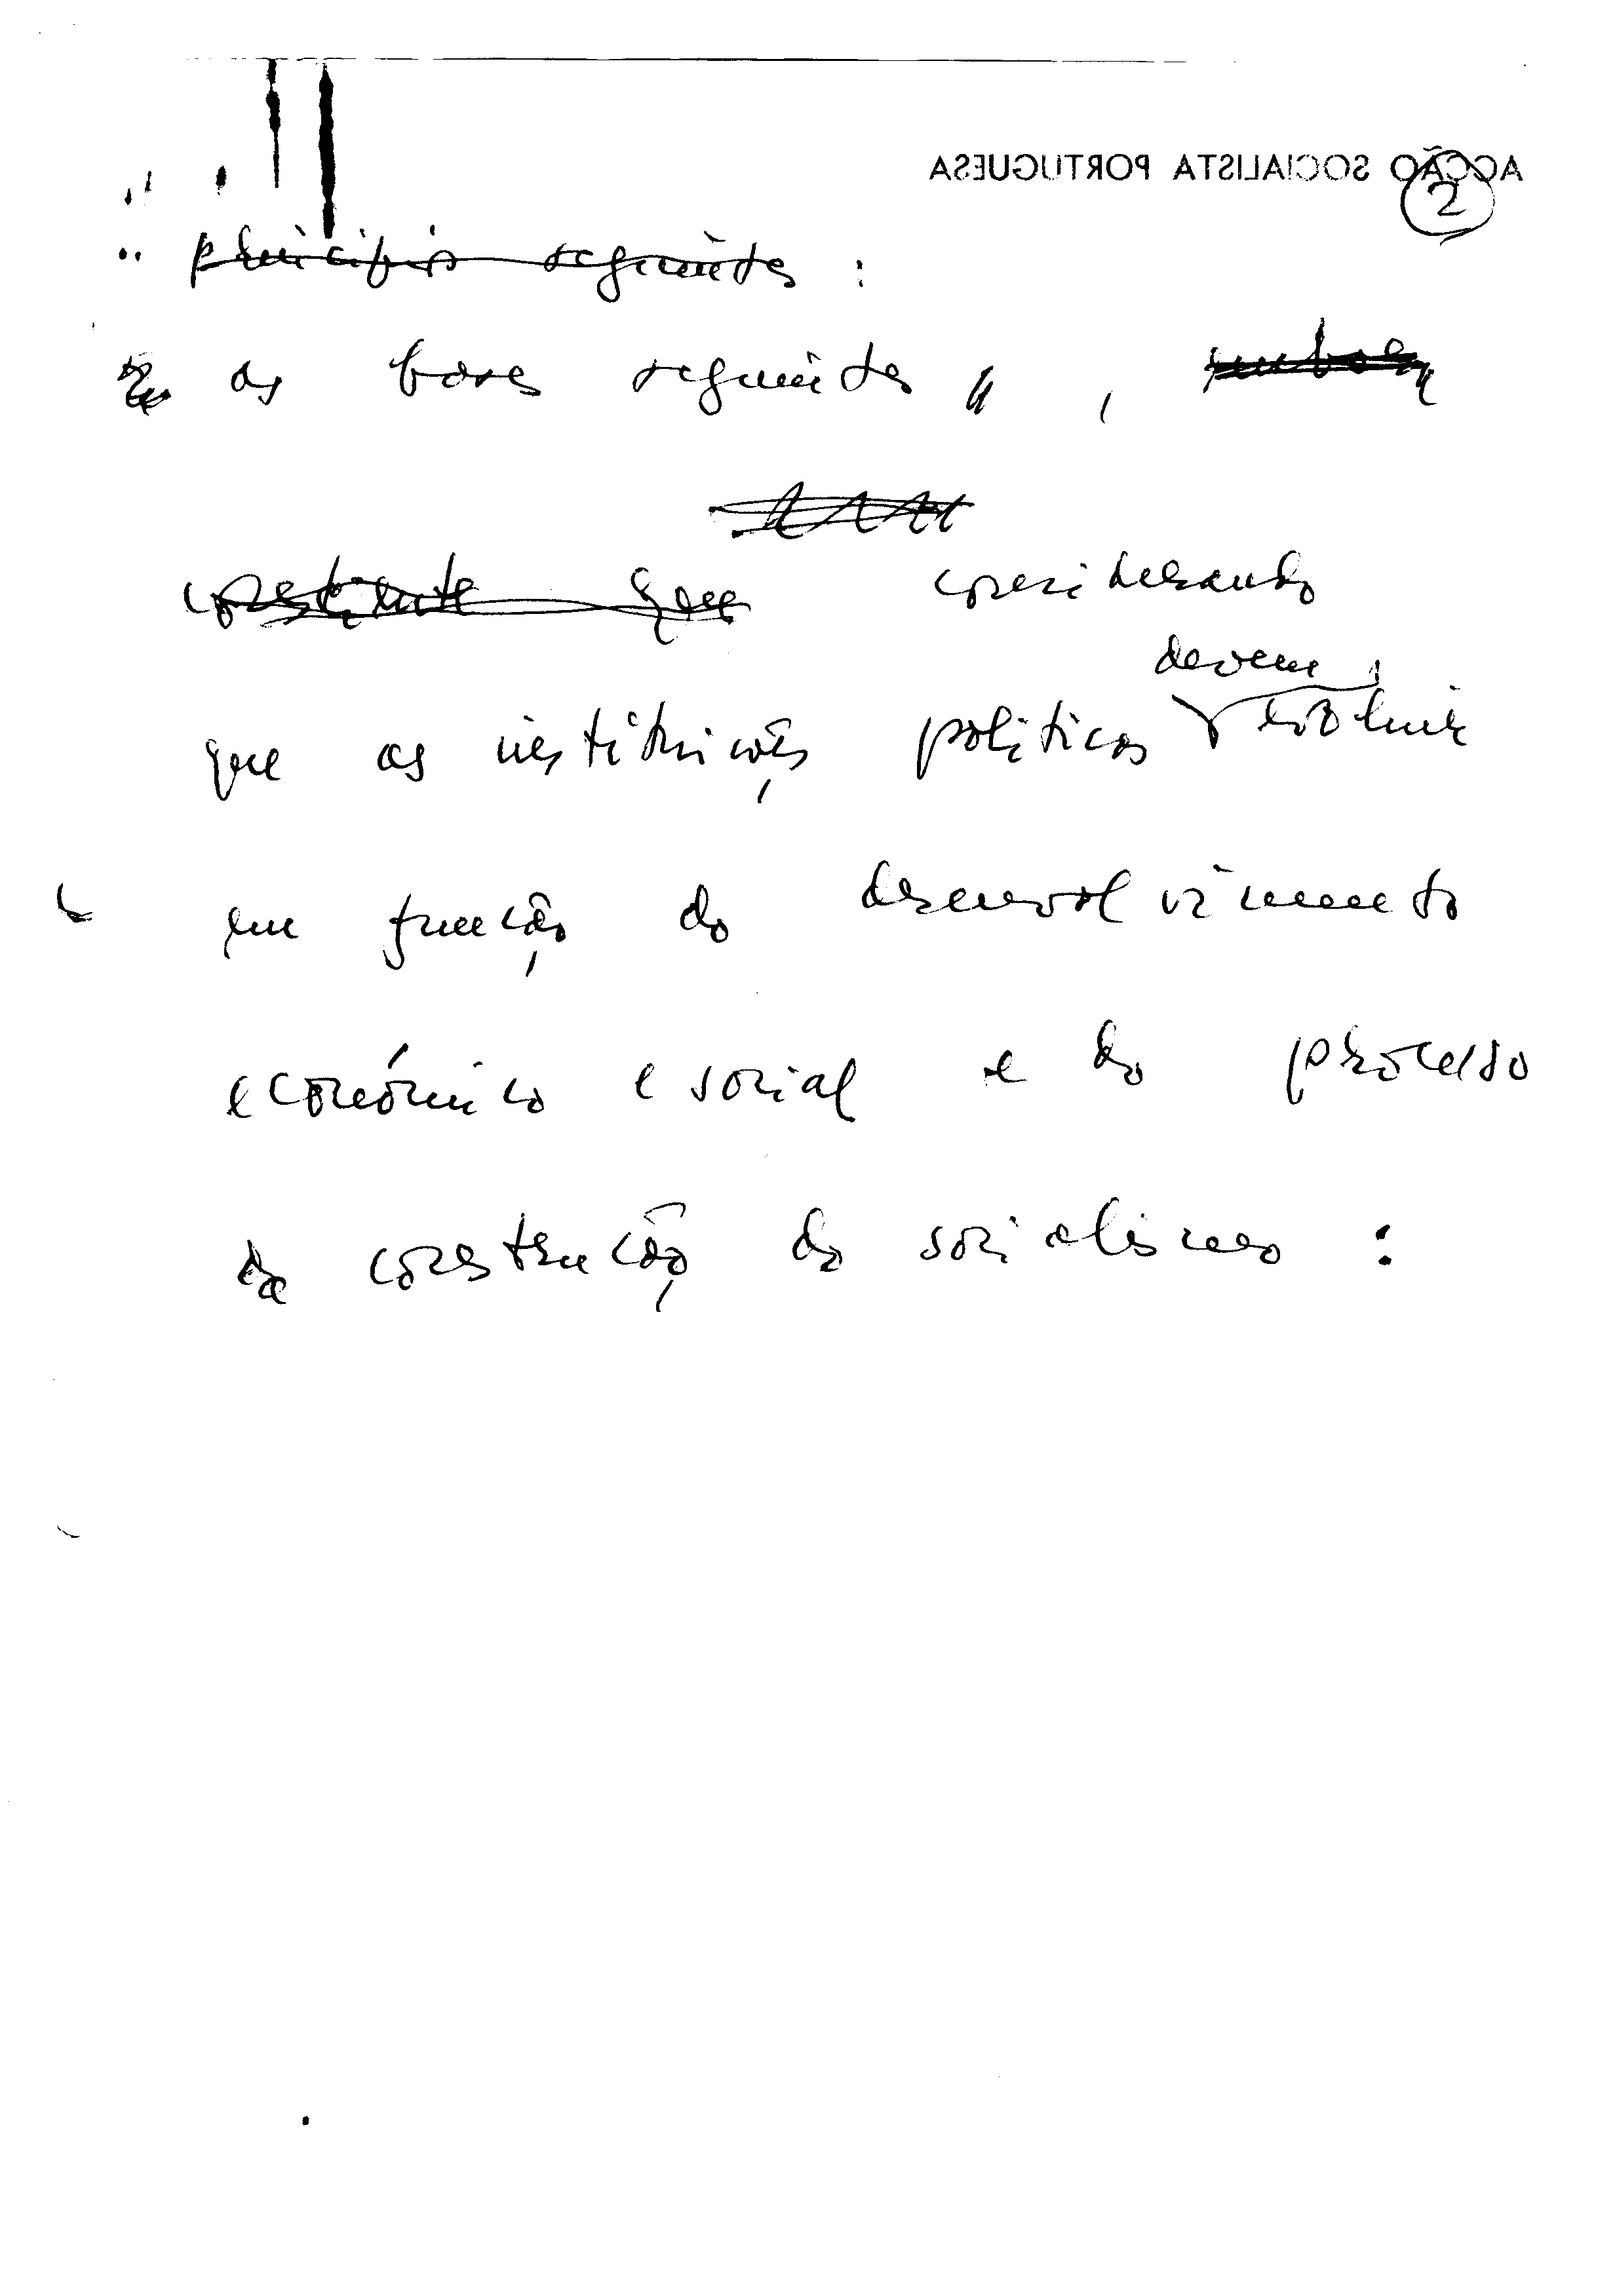 ACÇÃO SOCIALISTA PORTUGUESA
2
principios seguintes :
as bases seguintes , embora
consciente que considerando
devem
que as instituições politicas evoluir
em função do desenvolvimento
económico e social e do processo
da construção do socialismo :